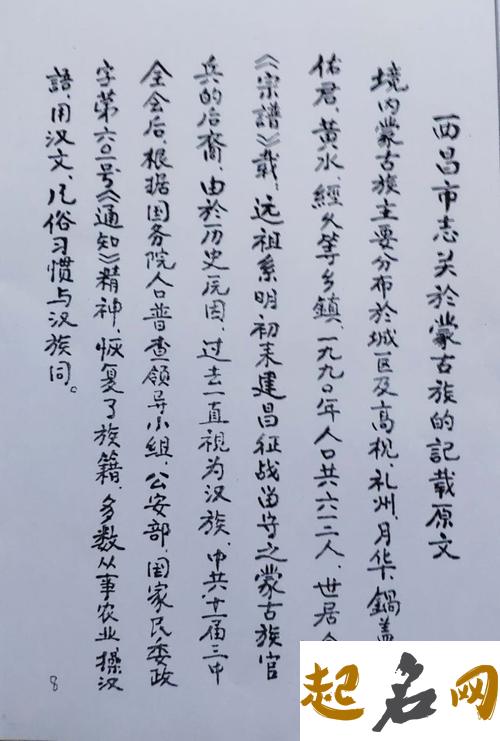 西昌市志关於蒙古族的記载原文
境内蒙古族主要分布於城区及高枧、礼州、月华、鍋盖
佑君、黄水、經久等乡鎮、一九九〇年人口共六一三人，世居
《宗譜》载：远祖系明初来建昌征战畄守之蒙古族官
兵的后裔，由於历史原因，过去一直視为汉族，中共十一届三中
全会后，根据国务院人口普查领导小组，公安部，国家民委政
字第六〇一号《通知》精神，恢复了族籍，多数从事农业，操汉
語，用汉文，风俗习惯与汉族同。
8
起名网